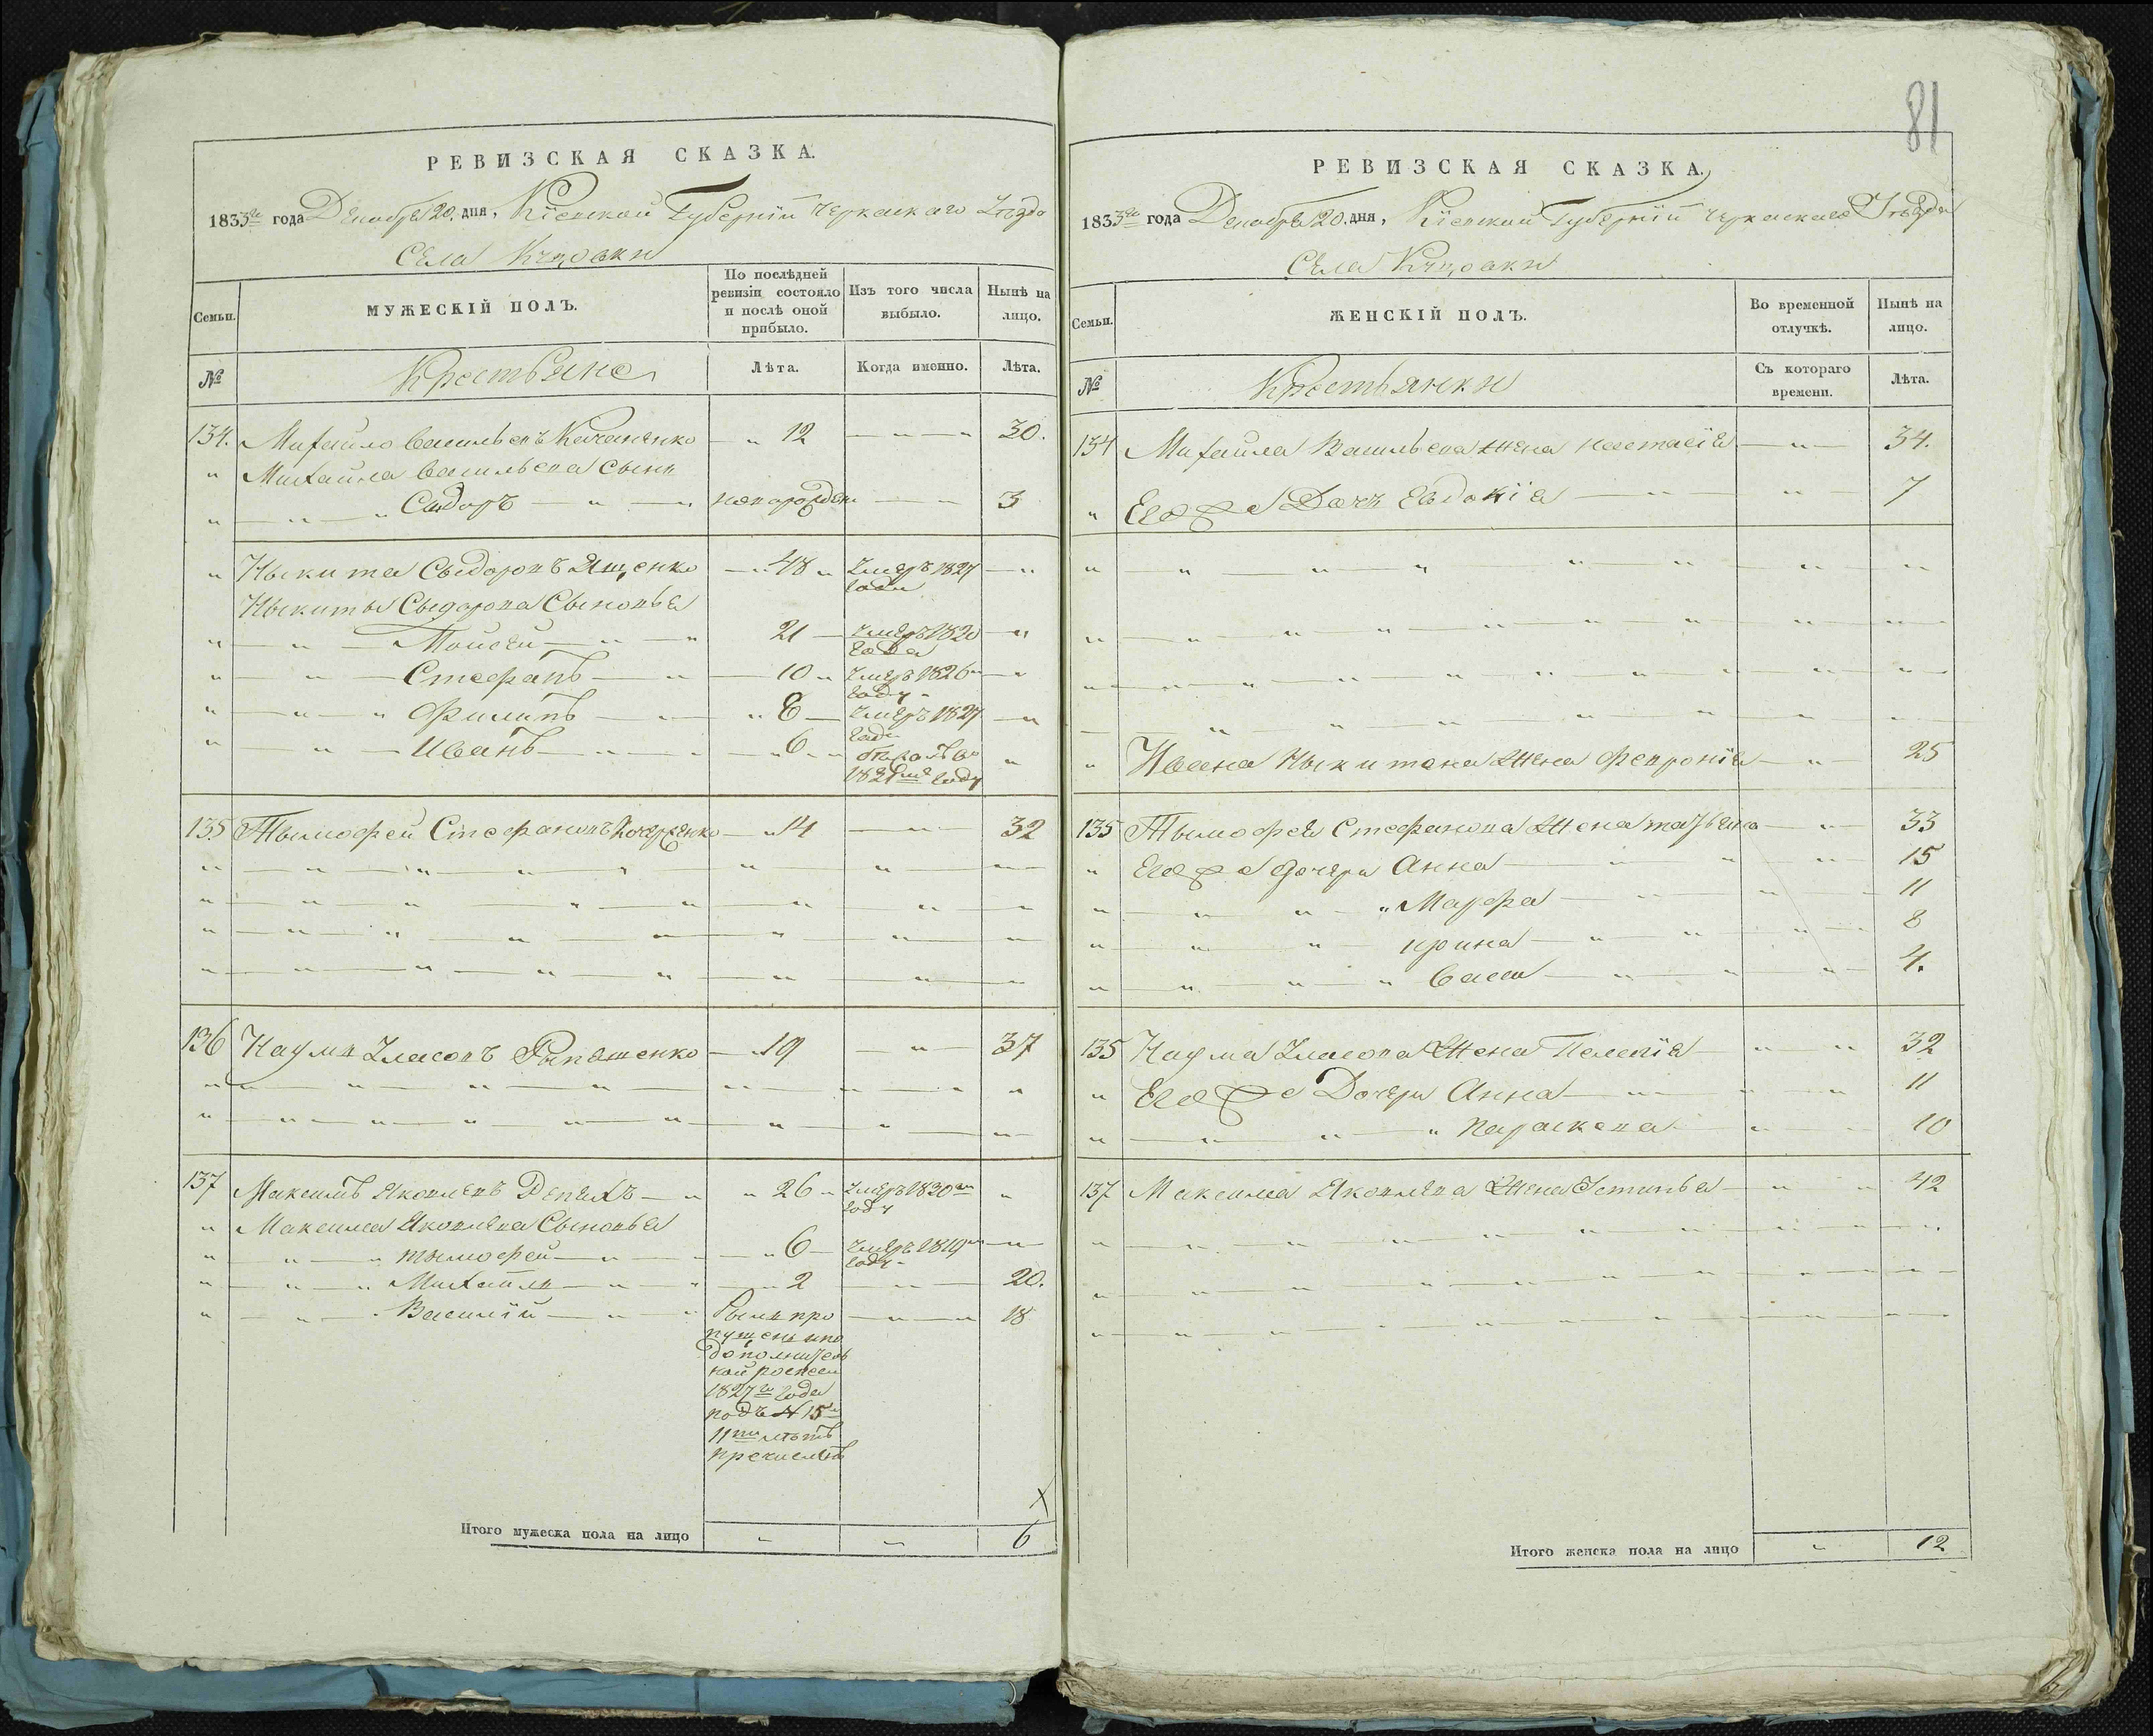 РЕВИЗСКАЯ СКАЗКА.
1833го года Декабря 20. дня, Кіевской Губерніи Черкаскаго Уезда
Села
Семьи.
МУЖЕСКІЙ ПОЛЪ.
По послѣдней ревизіи состояло и послѣ оной прибыло.
Изъ того числа выбыло.
Нынѣ на лицо.
№
Крестьяне
Лѣта.
Когда именно.
Лѣта.
134. Михайло Васильевъ — „ 12 — „ — 30.
„ Михайла Васильева сынъ
„ — „ — „ Сыдоръ — „ — „ новорожден — „ — 3
„ Никита Сыдоровъ Ященко — „ 48 „ Умеръ 1827 года — „
Никиты Сыдорова Сыновья
„ — „ — Мойсей — „ — „ 21 — Умеръ 1820 года — „
„ — „ — Стефанъ — „ — 10 „ Умеръ 1826 году „ — „
„ — „ — „ Филипъ — „ — „ 8 — Умеръ 1827 года — „
„ — „ — Иванъ — „ — „ 6 — „ году „
135 Тымофей Стефановъ — „ 14 — „ — 32
136 Наумъ Уласовъ — „ 19 — „ — 37
137 Максимъ Яковлевъ — „ „ 26 „ Умеръ 1830 году „
„ Максима Яковлева Сыновья
„ — „ — „ тымофей — „ — „ 6 — Умеръ 1819 году — „
„ — „ — „ Михайла — „ — „ 2 — „ — 20.
„ — „ — „ Василій — „ — „ Былъ про — „ — „ 18
пущенъ ипо
дополнитель
кой
1827го года
подъ № 15
11ти летъ
Итого мужеска пола на лицо „ „ 6
81
РЕВИЗСКАЯ СКАЗКА.
1833го года Декабря 20. дня, Кіевской Губерніи Черкаскаго Уезда
Села
Семьи.
ЖЕНСКІЙ ПОЛЪ.
Во временной отлучкѣ.
Нынѣ на лицо.
№
Крестьянки
Съ котораго времени.
Лѣта.
134 Михайла Васильева жена настасія — „ — 34.
„ Его же Дочъ Евдокія — „ — „ — 7
„ Ивана Никитина жена Феврония — „ — 25
135 Тымофея Стефанова жена татьяна — „ — 33
„ Его же дочери Анна — „ — „ — „ — 15
„ — „ — „ — „ Марфа — „ — „ — 11
„ — „ — „ — ирина — „ — „ — „ — 8
„ — „ — „ — „ — „ — „ — „ — 4.
135 Наума Уласова жена Пелагія — „ — „ 32
„ Его же Дочери Анна — „ — „ „ 11
„ — „ — „ — „ Параскева — „ — 10
137 Максима Яковлева жена Устинья — „ — „ 42
Итого женска пола на лицо „ 12